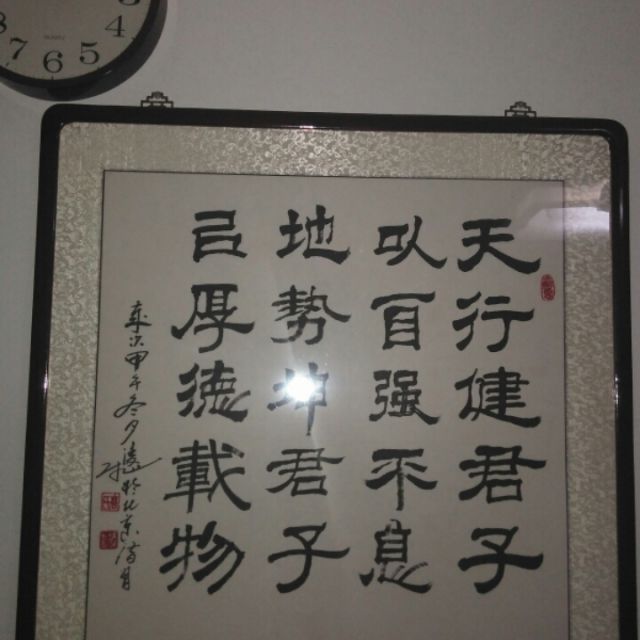 8 7 6 5 4
QUARTZ
天行健君子
以自强不息
地势坤君子
㠯厚德載物
甲午冬夕 於北京